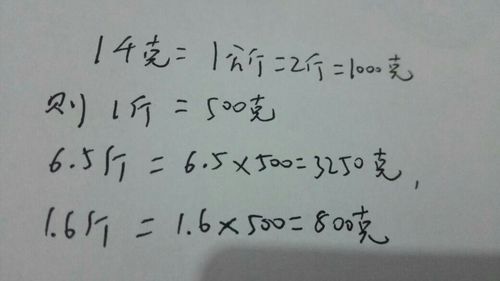 1千克=1公斤=2斤=1000克
则1斤=500克
6.5斤=6.5×500=3250克,
1.6斤=1.6×500=800克